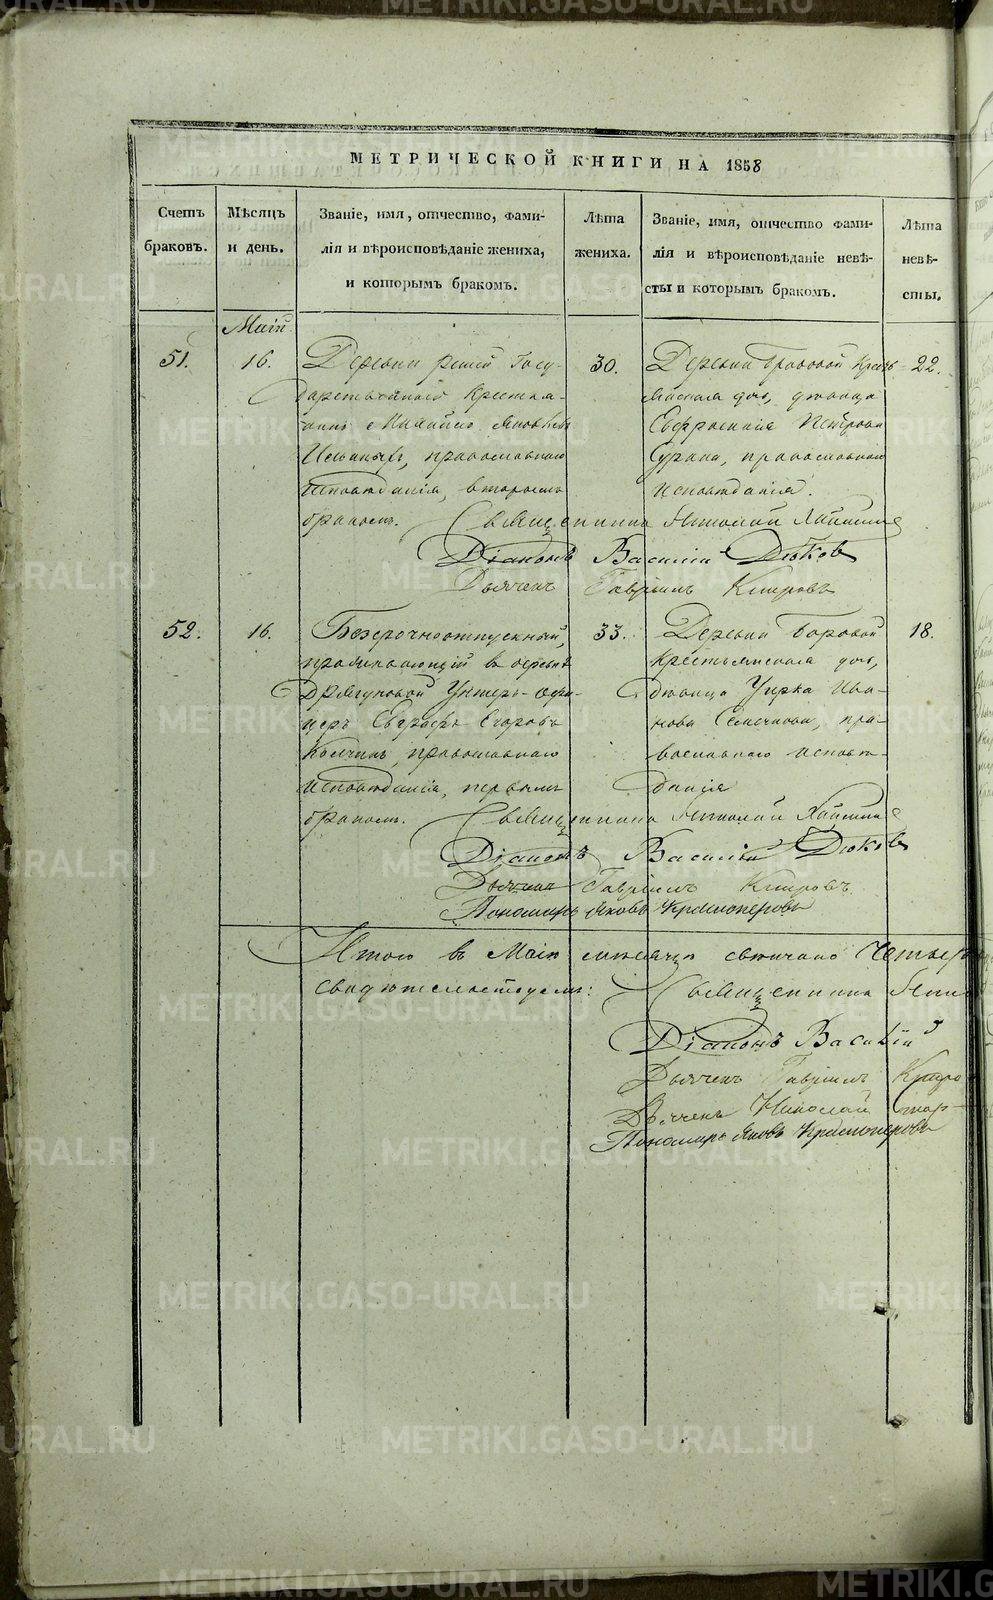 МЕТРИЧЕСКОЙ КНИГИ НА 1858
Счетъ браковъ.
Мѣсяцъ и день.
Званіе, имя, отчество, фами-
лія и вѣроисповѣданіе жениха,
и которымъ бракомъ.
Лѣта жениха.
Званіе, имя, отчество фами-
лія и вѣроисповѣданіе невѣ-
сты и которымъ бракомъ.
Лѣта невѣ-
сты.
Маій
51.
16.
Деревни Госу-
дарственный Крестья-
нинъ Михайло Яковлевъ
православнаго
исповѣданія, вторымъ
бракомъ.
30.
Деревни Крестъ-
янская дочь, дѣвица
Евфросинія Петрова
православнаго
исповѣданія.
22.
Священникъ Николай
Діаконъ Василій Дюковъ
Дьячекъ Гавріилъ Кипровъ
52.
16.
Безсрочноотпускный,
проживающій въ деревнѣ
Унтеръ-Офи-
церъ Евграфъ Егоровъ
православнаго
исповѣданія, первымъ
бракомъ.
33.
Деревни Боровой
крестьянская дочь,
дѣвица Ива-
нова пра-
вославнаго исповѣ-
данія
18.
Священникъ Николай
Діаконъ Василій Дюковъ
Дьячекъ Гавріилъ Кипровъ
Пономарь Яковъ Красноперовъ
Итого въ Маіи мѣсяцѣ свѣнчано Четыре
Священникъ Нико
Діаконъ Василій
Дьячекъ Гавріилъ Кипро
Дьячекъ Николай
Пономарь Яковъ Красноперовъ
METRIKI.GASO-URAL.RU